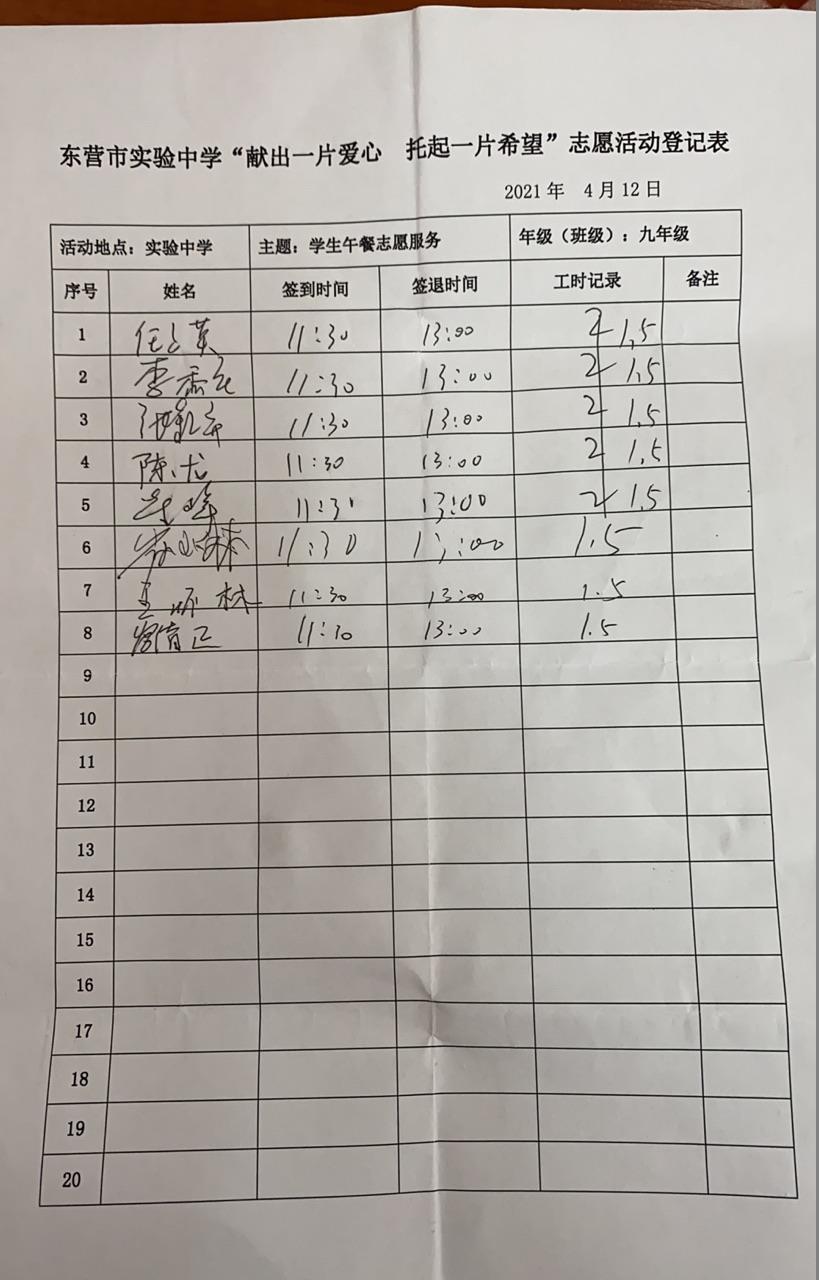 东营市实验中学“献出一片爱心 托起一片希望”志愿活动登记表
2021 年 4 月 12 日
活动地点：实验中学 主题：学生午餐志愿服务 年级（班级）：九年级
序号 姓名 签到时间 签退时间 工时记录 备注
1 11:30 13:00 2 1.5
2 李 11:30 13:00 2 1.5
3 11:30 13:00 2 1.5
4 陈 11:30 13:00 2 1.5
5 13:00 2 1.5
6 11:30 13:00 1.5
7 王 林 11:30 13:00 1.5
8 11:30 13:00 1.5
9
10
11
12
13
14
15
16
17
18
19
20